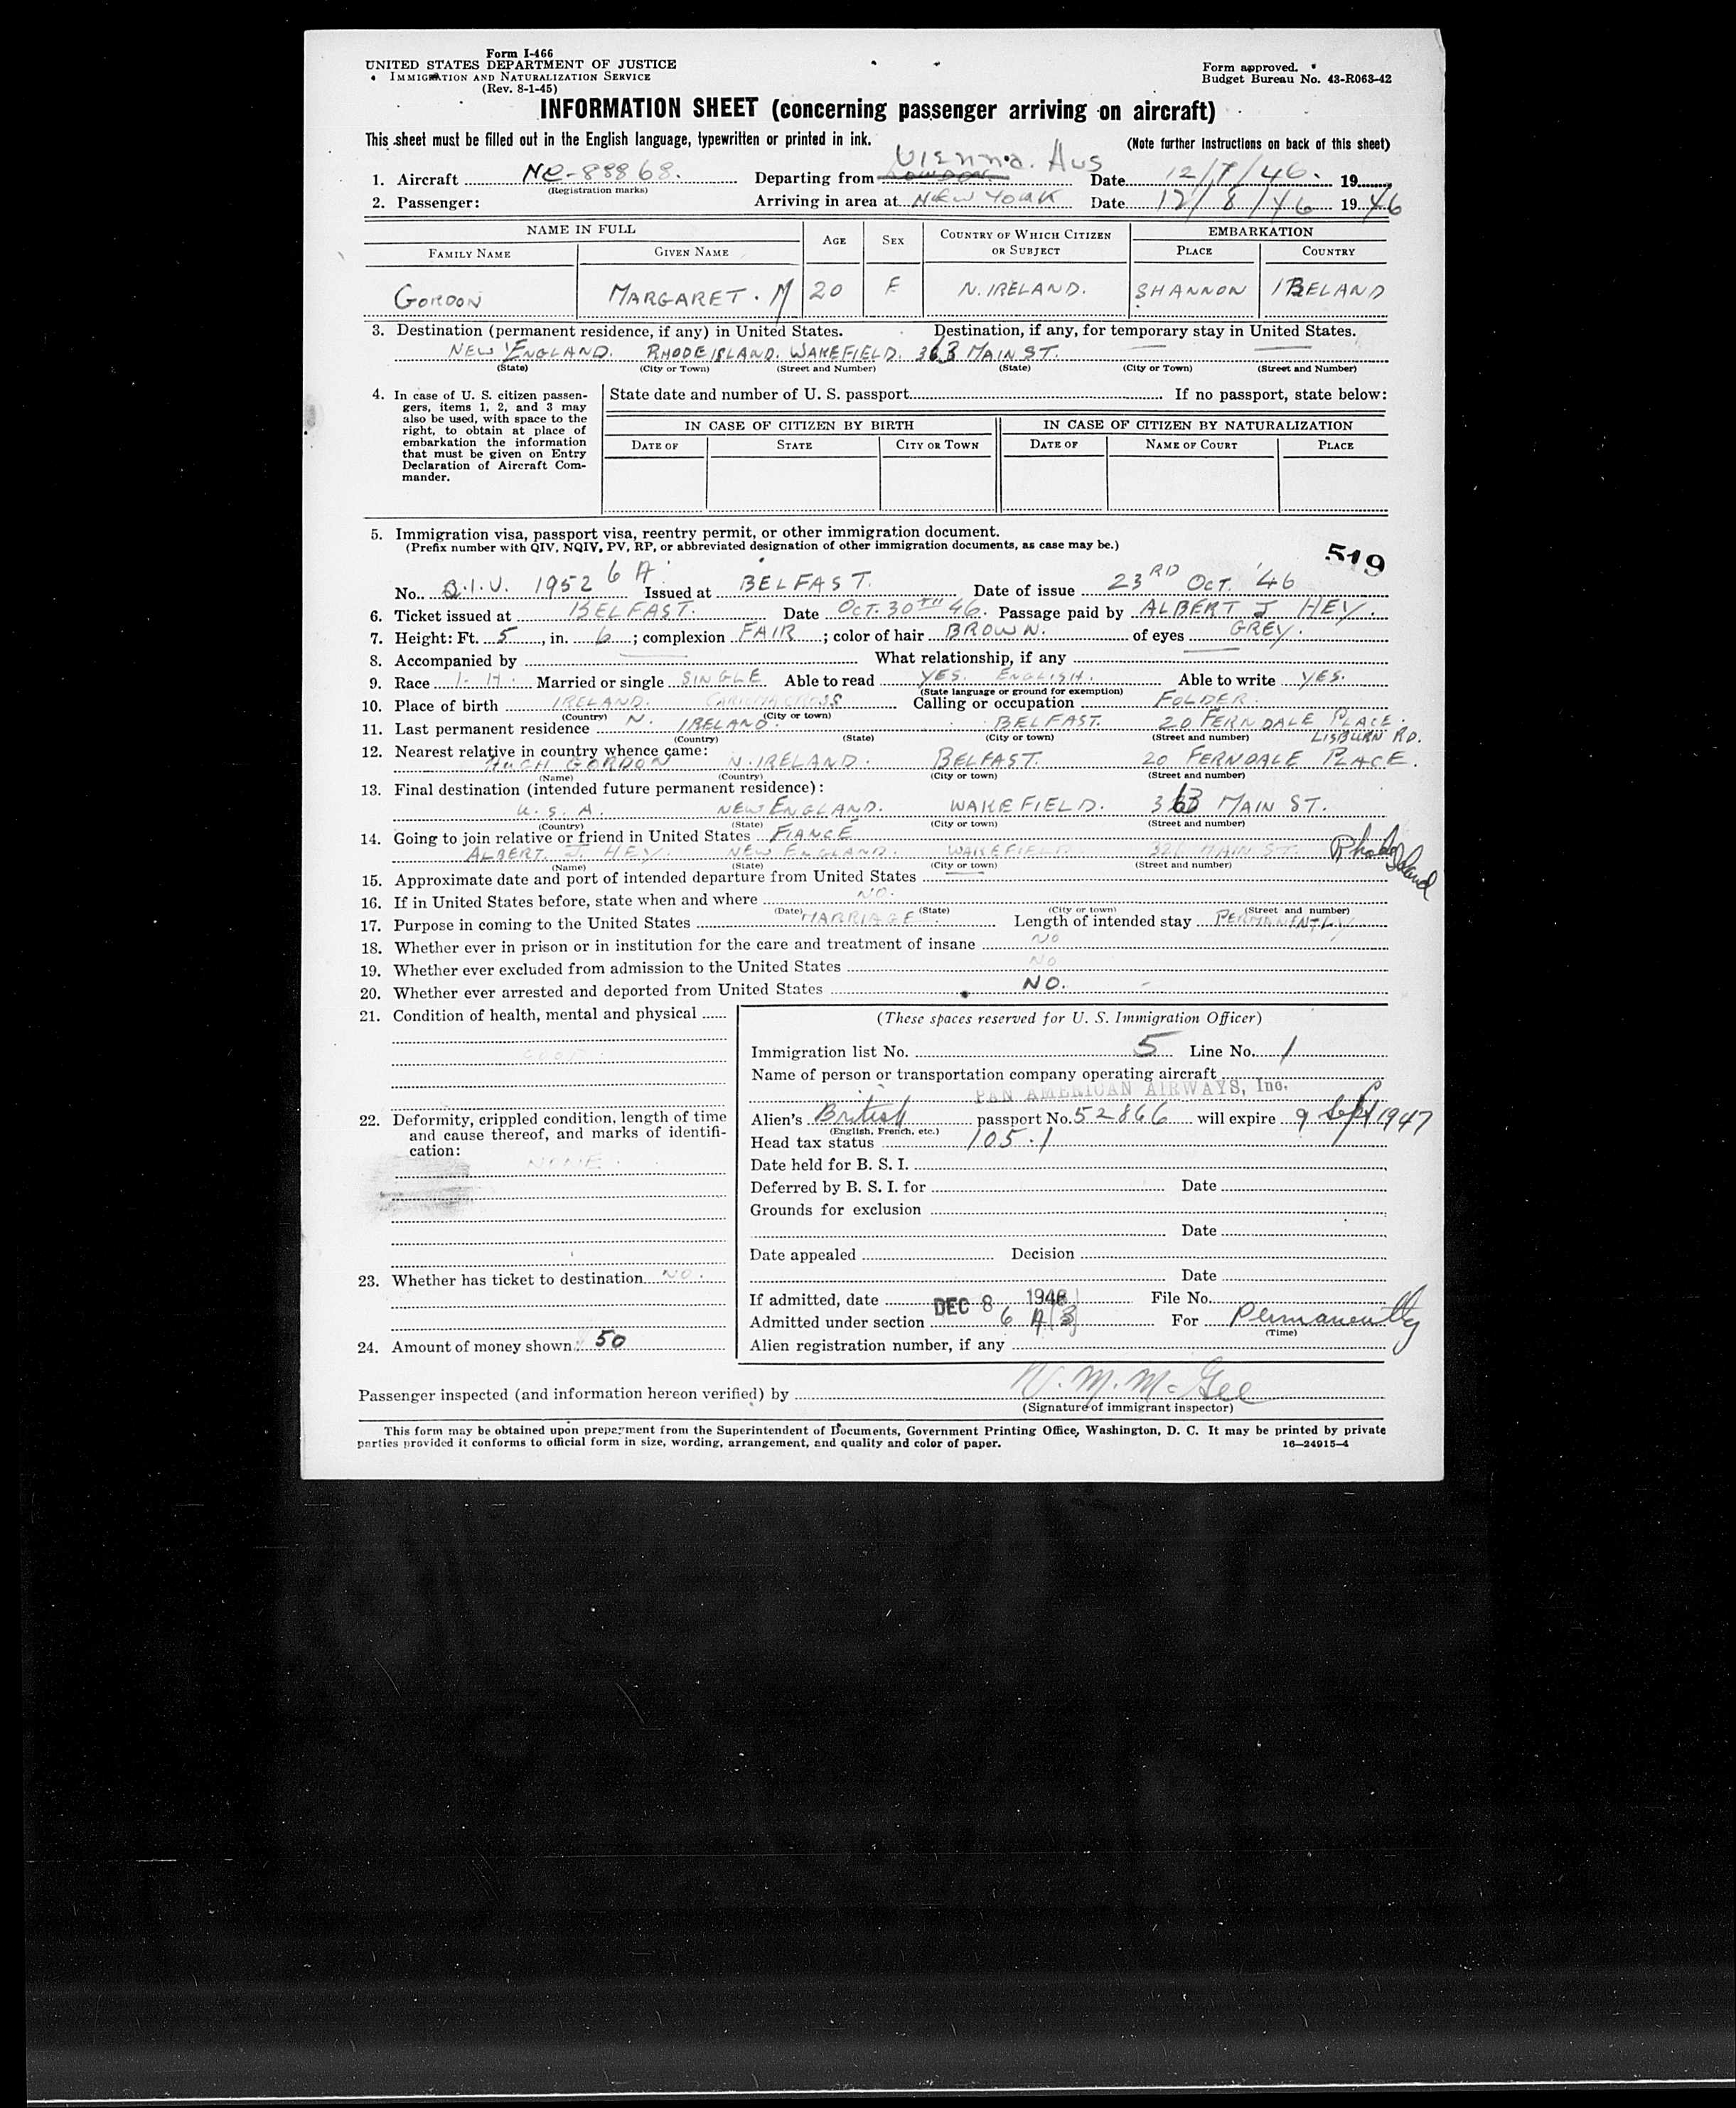 Form I-466
UNITED STATES DEPARTMENT OF JUSTICE
IMMIGRATION AND NATURALIZATION SERVICE
(Rev. 8-1-45)
Form approved.
Budget Bureau No. 43-R063-42
INFORMATION SHEET (concerning passenger arriving on aircraft)
This sheet must be filled out in the English language, typewritten or printed in ink. (Note further instructions on back of this sheet)
Vienna. Aus
1. Aircraft NC-88868. Departing from London Date 12/7/46. 19
(Registration marks)
2. Passenger: Arriving in area at NEW YORK Date 12/8/46 1946
NAME IN FULL AGE SEX COUNTRY OF WHICH CITIZEN OR SUBJECT EMBARKATION
FAMILY NAME GIVEN NAME PLACE COUNTRY
GORDON MARGARET. M 20 F N. IRELAND. SHANNON IRELAND
3. Destination (permanent residence, if any) in United States. Destination, if any, for temporary stay in United States.
NEW ENGLAND. RHODE ISLAND. WAKEFIELD. 363 MAIN ST.
(State) (City or Town) (Street and Number) (State) (City or Town) (Street and Number)
4. In case of U. S. citizen passengers, items 1, 2, and 3 may also be used, with space to the right, to obtain at place of embarkation the information that must be given on Entry Declaration of Aircraft Commander.
State date and number of U. S. passport If no passport, state below:
IN CASE OF CITIZEN BY BIRTH IN CASE OF CITIZEN BY NATURALIZATION
DATE OF STATE CITY OR TOWN DATE OF NAME OF COURT PLACE
5. Immigration visa, passport visa, reentry permit, or other immigration document.
(Prefix number with QIV, NQIV, PV, RP, or abbreviated designation of other immigration documents, as case may be.)
519
No. Q.I.V. 1952 6 A Issued at BELFAST. Date of issue 23RD OCT. '46
6. Ticket issued at BELFAST. Date OCT. 30TH 46. Passage paid by ALBERT J HEY.
7. Height: Ft. 5, in. 6; complexion FAIR; color of hair BROWN. of eyes GREY.
8. Accompanied by What relationship, if any
9. Race Married or single SINGLE Able to read YES. ENGLISH. Able to write YES.
(State language or ground for exemption)
10. Place of birth IRELAND. CARRICKMACROSS Calling or occupation FOLDER.
(Country) (City or town)
11. Last permanent residence N. IRELAND. BELFAST. 20 FERNDALE PLACE. LISBURN RD.
(Country) (State) (City or town) (Street and number)
12. Nearest relative in country whence came:
HUGH GORDON N. IRELAND. BELFAST. 20 FERNDALE PLACE.
(Name) (Country) (City or town) (Street and number)
13. Final destination (intended future permanent residence):
U. S. A. NEW ENGLAND. WAKEFIELD. 363 MAIN ST.
(Country) (State) (City or town) (Street and number)
14. Going to join relative or friend in United States FIANCÉ
ALBERT. J. HEY. NEW ENGLAND. WAKEFIELD MAIN ST. Rhode Island
(Name) (State) (City or town) (Street and number)
15. Approximate date and port of intended departure from United States
16. If in United States before, state when and where NO.
(Date) (State) (City or town) (Street and number)
17. Purpose in coming to the United States MARRIAGE. Length of intended stay PERMANENTLY
18. Whether ever in prison or in institution for the care and treatment of insane NO
19. Whether ever excluded from admission to the United States NO
20. Whether ever arrested and deported from United States NO.
21. Condition of health, mental and physical
GOOD.
22. Deformity, crippled condition, length of time and cause thereof, and marks of identification:
NONE.
23. Whether has ticket to destination NO.
24. Amount of money shown 50
(These spaces reserved for U. S. Immigration Officer)
Immigration list No. 5 Line No. 1
Name of person or transportation company operating aircraft
PAN AMERICAN AIRWAYS, Inc.
Alien's British passport No. 52866 will expire 9 Sept 1947
(English, French, etc.)
Head tax status 105.1
Date held for B. S. I.
Deferred by B. S. I. for Date
Grounds for exclusion
Date
Date appealed Decision
Date
If admitted, date DEC 8 1946 File No.
Admitted under section 6 A (3) For Permanently
(Time)
Alien registration number, if any
Passenger inspected (and information hereon verified) by W. M. McGee
(Signature of immigrant inspector)
This form may be obtained upon prepayment from the Superintendent of Documents, Government Printing Office, Washington, D. C. It may be printed by private
parties provided it conforms to official form in size, wording, arrangement, and quality and color of paper. 16—24915-4